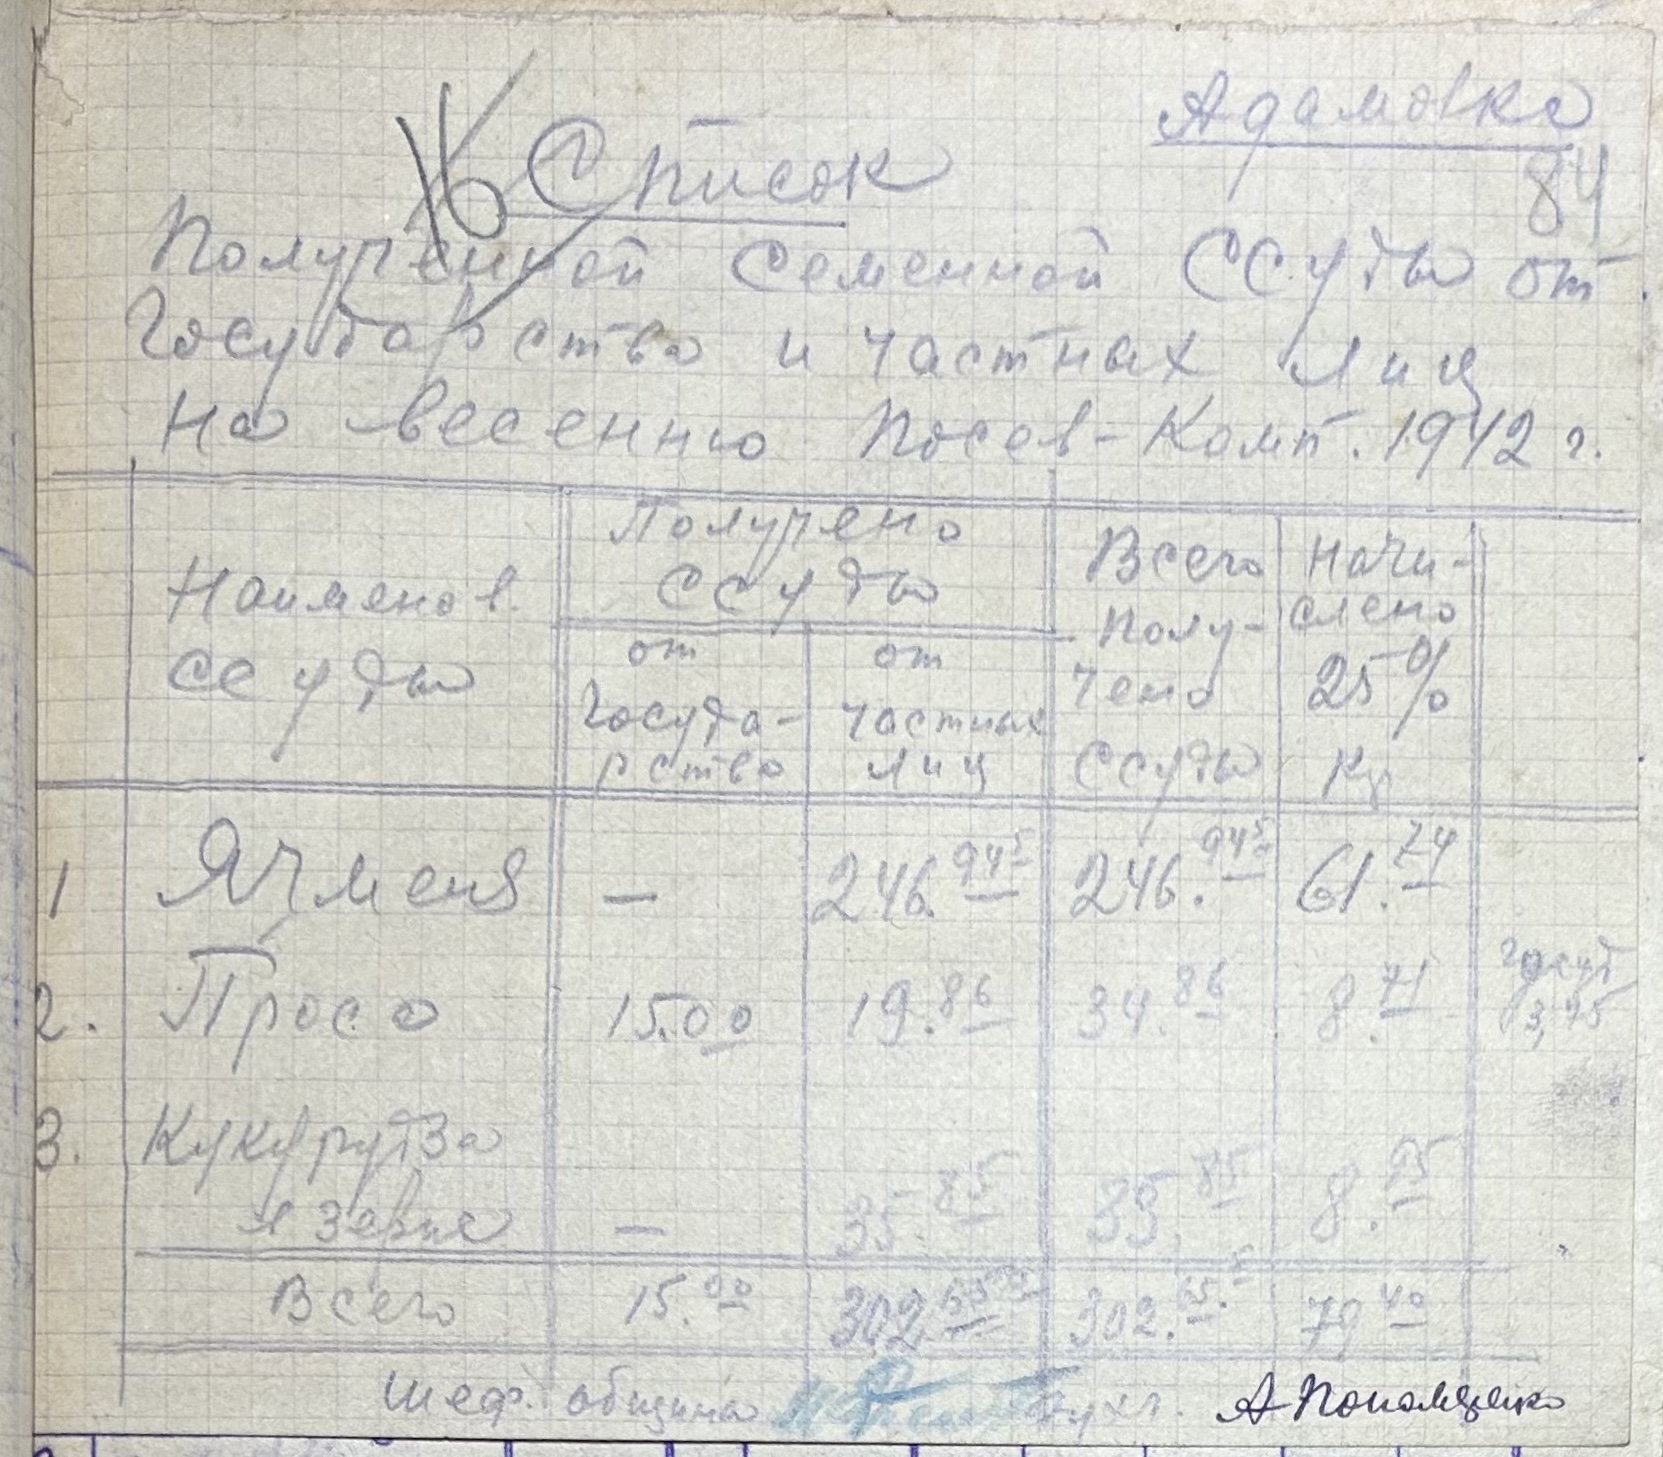 Адамовка
84
16 Список
Полученной Семенной ССуды от
Государства и частных лиц
на весенню Посев-Комп. 1942 г.
Наименов. ссуды
Получено ссуды
от Государства
от частных лиц
Всего Получено ссуды
Начислено 25% Кг
1 Ячменя — 246.94⁵ 246.94⁵ 61.74
2. Просо 15.00 19.86 34.86 8.71
3. Кукурудза
в зерне — 35.85 35.85 8.95
Всего 15.00 302.65⁵ 302.65⁵ 79.40
Шеф. общины Бухг. А Пономаренко